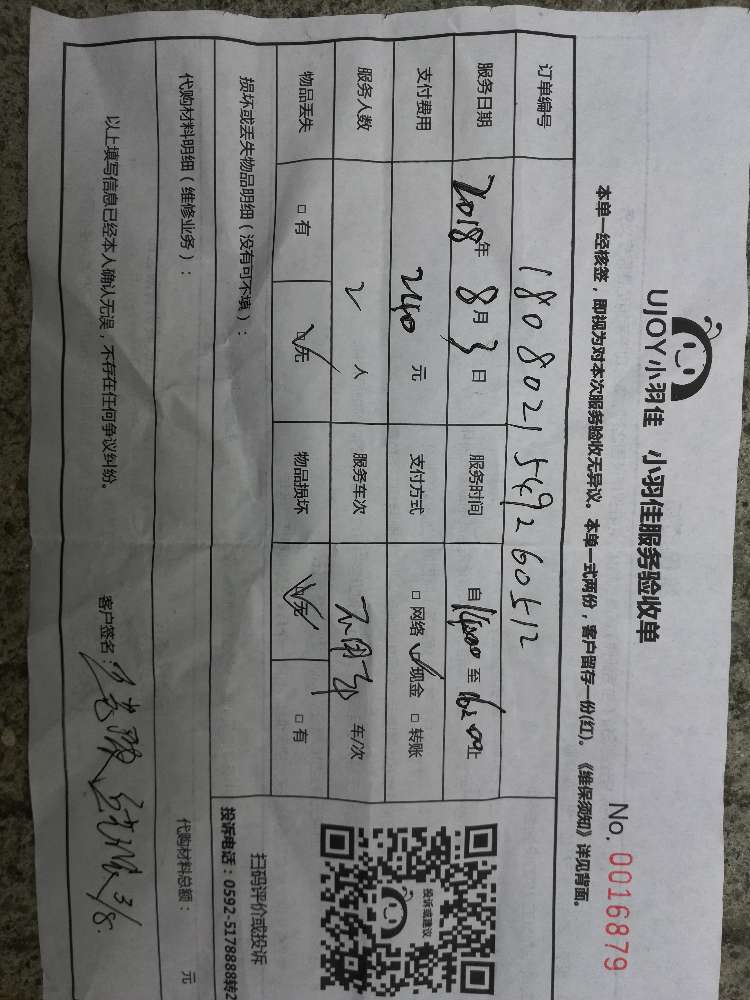 UJOY小羽佳 小羽佳服务验收单
No. 0016879
本单一经核签，即视为对本次服务验收无异议。本单一式两份，客户留存一份(红)。《维保须知》详见背面。
订单编号 1808021549260512
服务日期 2018年8月3日 服务时间 自14:00至16:00止
支付费用 240元 支付方式 □网络 ☑现金 □转账
服务人数 2人 服务车次 不用车 车/次
物品丢失 □有 ☑无 物品损坏 ☑无 □有
损坏或丢失物品明细（没有可不填）：
投诉或建议
扫码评价或投诉
投诉电话：0592-5178888转2
代购材料明细（维修业务）： 代购材料总额： 元
以上填写信息已经本人确认无误，不存在任何争议纠纷。 客户签名： 3/8.